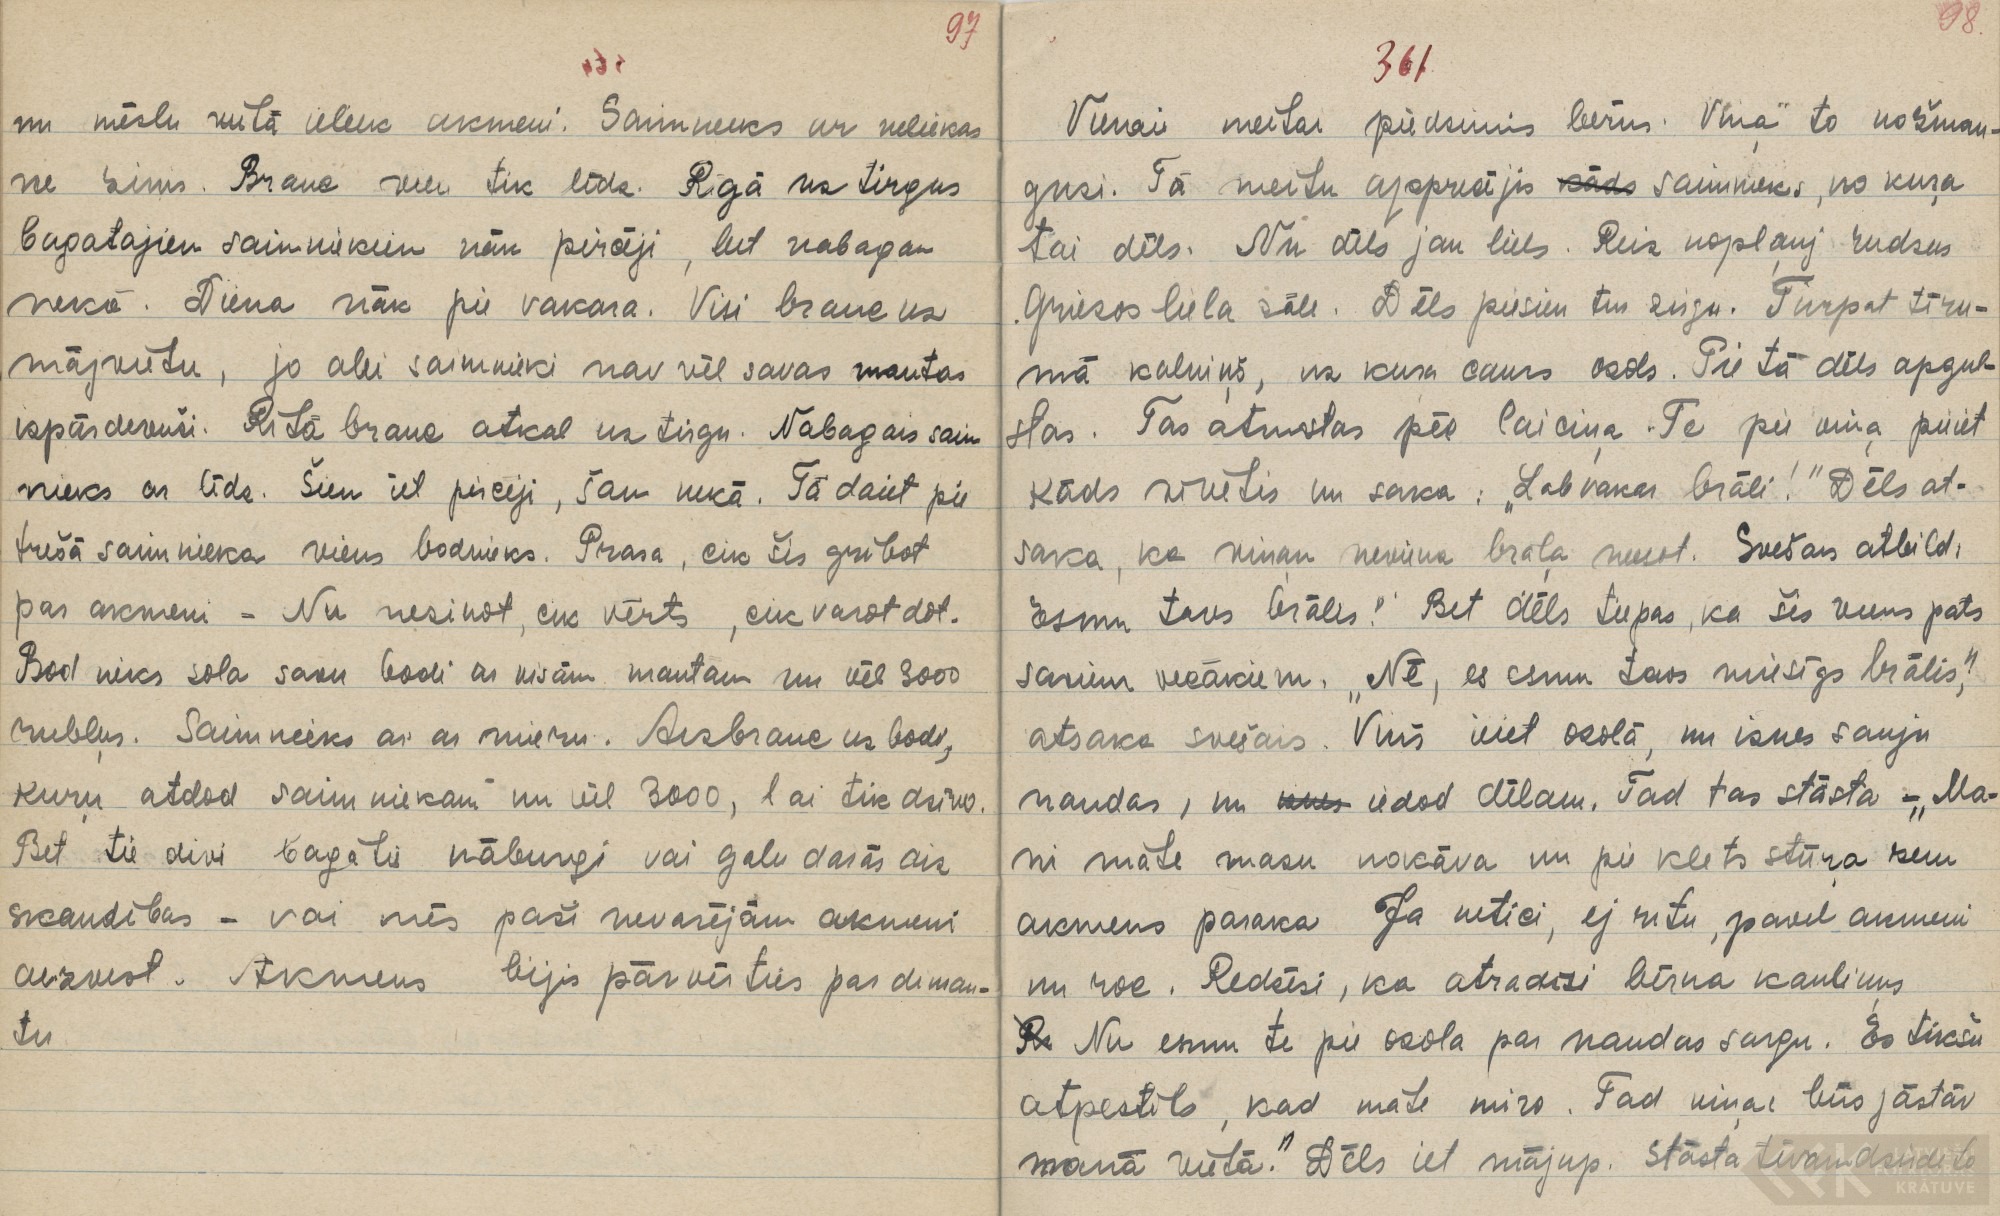 97
un mēslu vietā ieliek akmeni. Saimnieks ar neliekas
ne zinis. Brauc vien tik līdz. Rīgā uz tirgus
bagatajiem saimniekiem nāk pircēji, bet nabagam
nekā. Diena nāk pie vakara. Visi brauc uz
mājvietu, jo abi saimnieki nav vēl savas mantas
izpārdevuši. Rītā brauc atkal uz tirgu. Nabagais saim
nieks ar līdz. Šiem iet pircēji, šam nekā. Tā daiet pie
trešā saimnieka viens bodnieks. Prasa, cik šis gribot
par akmeni – Nu nezinot, cik vērts, cik varot dot.
Bodnieks sola savu bodi ar visām mantām un vēl 3000
rubļus. Saimnieks ar ar mieru. Aizbrauc uz bodi,
kuŗu atdod saimniekam un vēl 3000, lai tik dzīvo.
Bet tie divi bagātie nābungi vai galu darās aiz
skaudības – vai mēs paši nevarējām akmeni
aizvest. Akmens bijis pārvērties par diman-
tu
98.
361
Vienai meitai piedzimis bērns. Viņa to nožman-
gusi. Tā meitu apprecējis kāds saimnieks, no kuŗa
tai dēls. Nu dēls jau liels. Reiz nopļauj rudzus
Griezos liela zāle. Dēls piesien tur zirgu. Turpat tīru-
mā kalniņš, uz kura caurs ozols. Pie tā dēls apgul-
stas. Tas atmostas pēc laiciņa. Te pie viņa pieiet
kāds vīrietis un saka: „Labvakar brāli!" Dēls at-
saka, ka viņam neviena brāļa neesot. Svešais atbild:
Esmu tavs brālis!" Bet dēls tiepas, ka šis viens pats
saviem vecākiem. „Nē, es esmu tavs miesīgs brālis,"
atsaka svešais. Viņš ieiet ozolā, un iznes sauju
naudas, un iedod dēlam. Tad tas stāsta – „Ma-
ni māte mazu nokāva un pie klēts stūŗa zem
akmens paraka Ja netici, ej rītu, pavel akmeni
un roc. Redzēsi, ka atradīsi bērna kauliņus
Nu esmu te pie ozola par naudas sargu. Es tikšu
atpestīts, kad māte mirs. Tad viņai būs jāstāv
manā vietā." Dēls iet mājup. Stāsta tēvam
KRĀTUVE